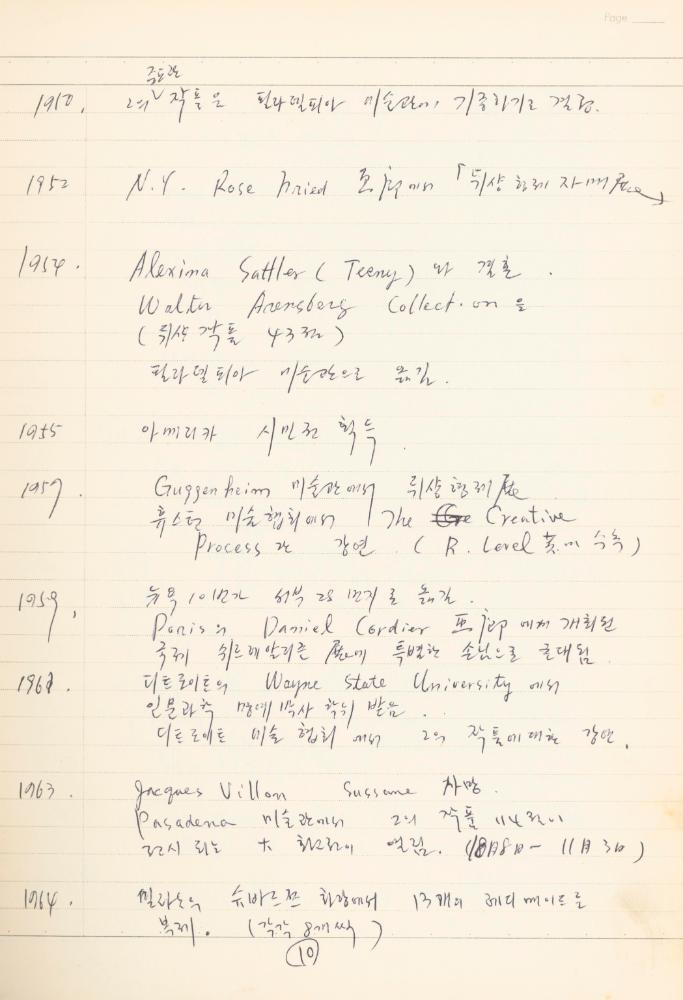 Page
주요한
1950. 그의 ∨ 작품을 필라델피아 미술관에 기증하기로 결정.
1952 N.Y. Rose Fried 画廊에서 「뒤샹 형제 자매展」
1954. Alexina Sattler ( Teeny ) 와 결혼.
Walter Arensberg Collection을
( 뒤샹 작품 43점 )
필라델피아 미술관으로 옮김.
1955 아메리카 시민권 획득.
1957. Guggenheim 미술관에서 뒤샹형제展
휴스턴 미술협회에서 The Creative
Process 란 강연. ( R. Level 英. 수록 )
1959. 뉴욕 10번가 서부 28번지로 옮김.
Paris의 Daniel Cordier 画廊에서 개최된
국제 쉬르레알리즘展에 특별한 손님으로 초대됨.
1961. 디트로이트의 Wayne State University에서
인문과학 명예박사 학위 받음.
디트로이트 미술협회에서 그의 작품에 대한 강연.
1963. Jacques Villon Sussane 사망.
Pasadena 미술관에서 그의 작품 114점이
전시되는 大 회고전이 열림. (10月8日 - 11月3日)
1964. 밀라노의 슈바르쯔 화랑에서 13개의 레디메이드를
복제. (각각 8개씩)
10